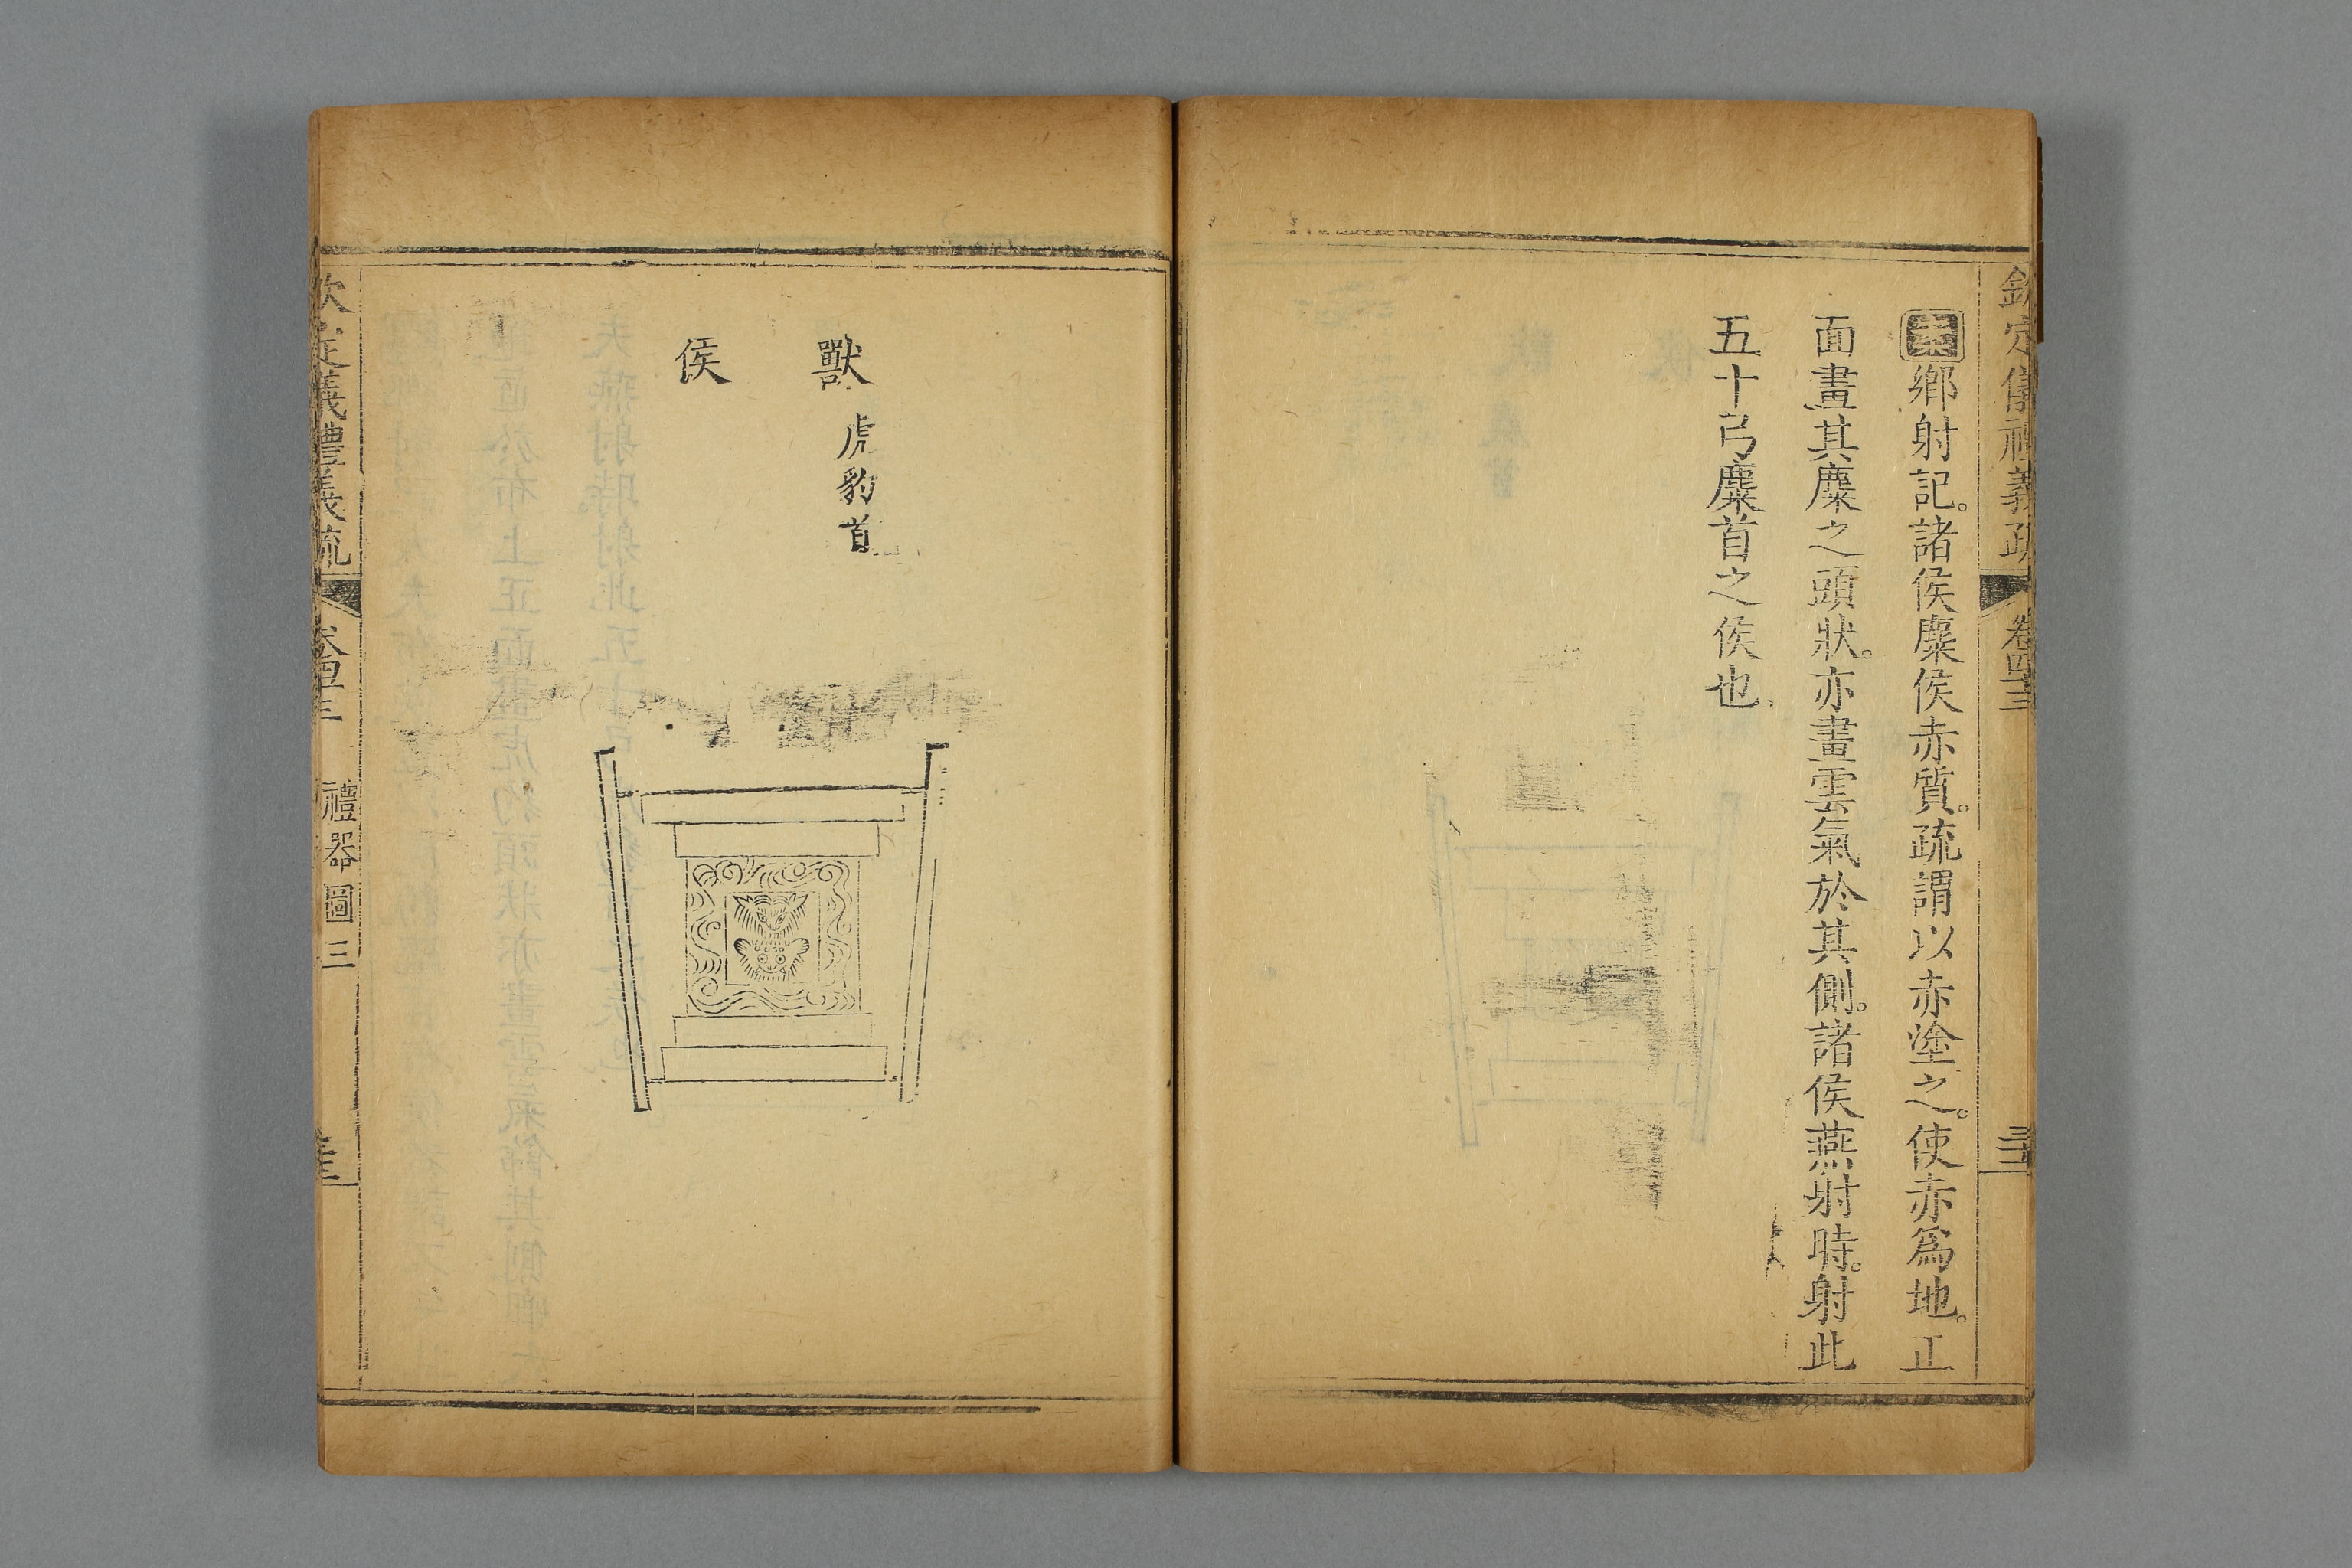 欽定儀禮義疏 卷四十三
鄉射記。諸侯麋侯赤質。疏謂以赤塗之。使赤爲地。正
面畫其麋之頭狀。亦畫雲氣於其側。諸侯燕射時。射此
五十弓麋首之侯也。
獸 虎豹首
侯
欽定儀禮義疏 卷四十三 禮器圖三